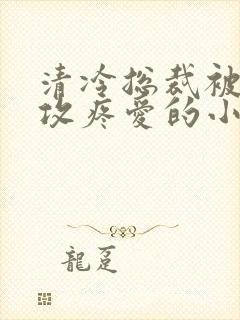 清冷总裁被
攻疼爱的小
龍趸